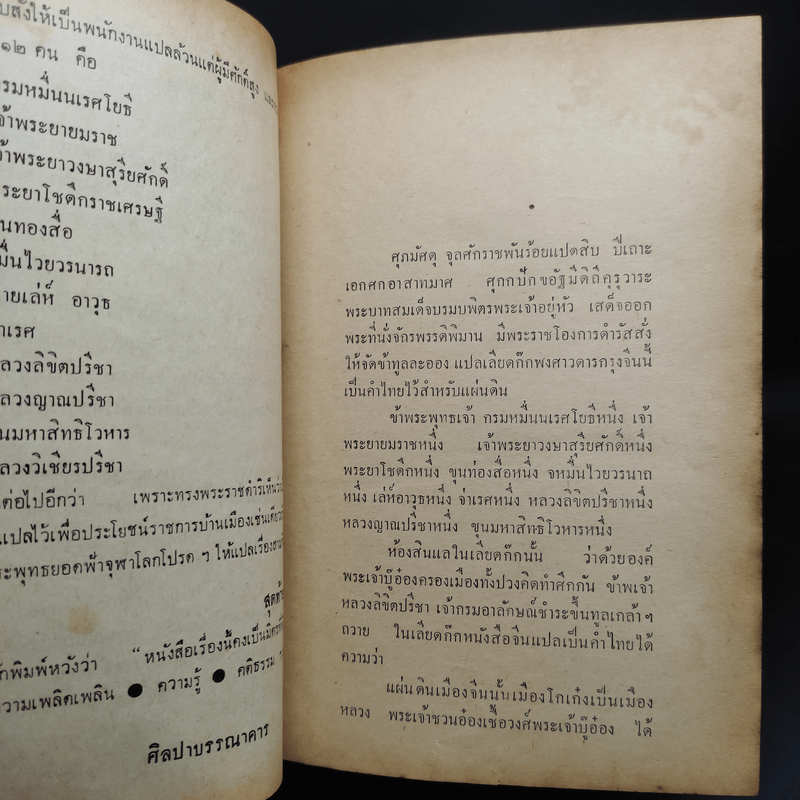 บสั่งให้เป็นพนักงานแปลล้วนแต่ผู้มีศักดิ์สูง
๑๒ คน คือ
รมหมื่นนเรศโยธี
จ้าพระยายมราช
จ้าพระยาวงษาสุริยศักดิ์
ระยาโชดึกราชเศรษฐี
ุนทองสื่อ
มื่นไวยวรนารถ
ายเล่ห์ อาวุธ
่าเรศ
ลวงลิขิตปรีชา
ลวงญาณปรีชา
ุนมหาสิทธิโวหาร
ลวงวิเชียรปรีชา
ต่อไปอีกว่า เพราะทรงพระราชดำริเห็นว่า
แปลไว้เพื่อประโยชน์ราชการบ้านเมืองเช่นเดียว
ระพุทธยอดฟ้าจุฬาโลกโปรด ฯ ให้แปลเรื่อง
สุดท้
ักพิมพ์หวังว่า "หนังสือเรื่องนี้คงเป็นมิตร
วามเพลิดเพลิน ● ความรู้ ● คติธรรม
ศิลปาบรรณาคาร
ศุภมัศดุ จุลศักราชพันร้อยแปดสิบ ปีเถาะ
เอกศกอาสาทมาศ ศุกกปักขอัฐมีดิถีคุรุวาระ
พระบาทสมเด็จบรมบพิตรพระเจ้าอยู่หัว เสด็จออก
พระที่นั่งจักรพรรดิพิมาน มีพระราชโองการดำรัสสั่ง
ให้จัดข้าทูลละออง แปลเลียดก๊กพงศาวดารกรุงจีนนี้
เป็นคำไทยไว้สำหรับแผ่นดิน
ข้าพระพุทธเจ้า กรมหมื่นนเรศโยธีหนึ่ง เจ้า
พระยายมราชหนึ่ง เจ้าพระยาวงษาสุริยศักดิ์หนึ่ง
พระยาโชดึกหนึ่ง ขุนท่องสื่อหนึ่ง จหมื่นไวยวรนาถ
หนึ่ง เล่ห์อาวุธหนึ่ง จ่าเรศหนึ่ง หลวงลิขิตปรีชาหนึ่ง
หลวงญาณปรีชาหนึ่ง ขุนมหาสิทธิโวหารหนึ่ง
ห้องสินแลในเลียดก๊กนั้น ว่าด้วยองค์
พระเจ้าบู๊อ๋องครองเมืองทั้งปวงคิดทำศึกกัน ข้าพเจ้า
หลวงลิขิตปรีชา เจ้ากรมอาลักษณ์ชำระขึ้นทูลเกล้าฯ
ถวาย ในเลียดก๊กหนังสือจีนแปลเป็นคำไทยได้
ความว่า
แผ่นดินเมืองจีนนั้นเมืองโกเก๋งเป็นเมือง
หลวง พระเจ้าชวนอ๋องเชื้อวงศ์พระเจ้าบู๊อ๋อง ได้